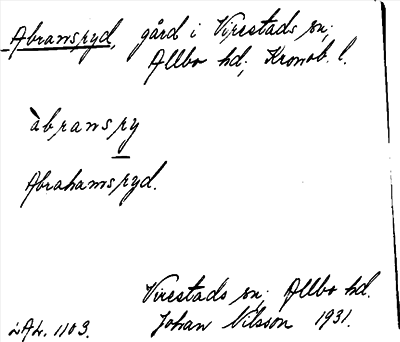 Abramsryd, gård i Virestads sn;
Allbo hd; Kronob. l.
àbramsry
Abrahamsryd.
Virestads sn; Allbo hd.
Johan Nilsson 1931.
1103.